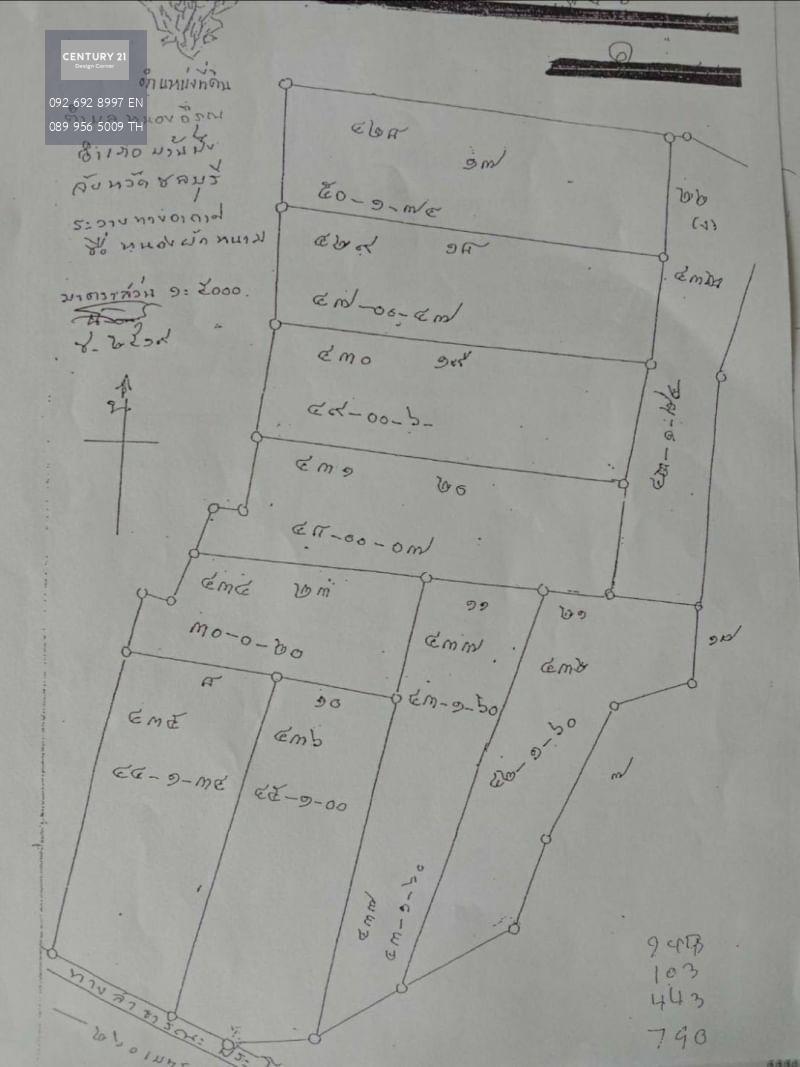 CENTURY 21
Design Corner
092 692 8997 EN
089 956 5009 TH
ตำแหน่งที่ดิน
ตำบล หนองอิรุณ
อำเภอ บ้านบึง
จังหวัด ชลบุรี
ระวางทางอากาศ
ชื่อ หนองผักหนาม
มาตราส่วน ๑: ๕๐๐๐
น
๔๒๘
๑๗
๕๐-๑-๗๔
๒๒
(ง)
๔๒๙
๑๘
๔๗-๐๐-๔๗
๔๓๐
๑๙
๔๙-๐๐-๖-
๔๓๑
๒๐
๔๘-๐๐-๐๗
๔๓๔
๒๓
๓๐-๐-๒๐
๑๑
๔๓๗
๔๓-๑-๖๐
๒๑
๔๓๒
๕๒-๑-๖๐
๑๗
๗
๘
๔๓๕
๔๔-๑-๓๔
๑๐
๔๓๖
๔๕-๑-๐๐
๔๓๗
๔๓-๑-๖๐
ทางสาธารณะ
103
443
790